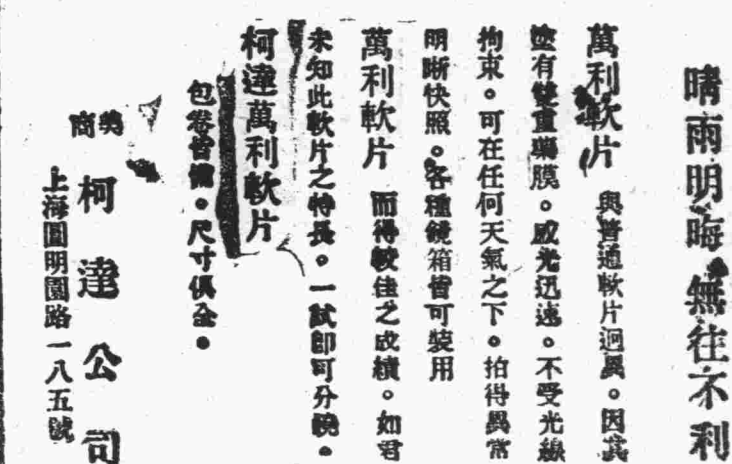 晴雨明晦無往不利
萬利軟片 與普通軟片迥異。因其
塗有雙重藥膜。感光迅速。不受光線
拘束。可在任何天氣之下。拍得異常
明晰快照。各種鏡箱皆可裝用
萬利軟片 而得較佳之成績。如君
未知此軟片之特長。一試即可分曉。
柯達萬利軟片
包卷皆備。尺寸俱全。
美商 柯達公司
上海圓明園路一八五號